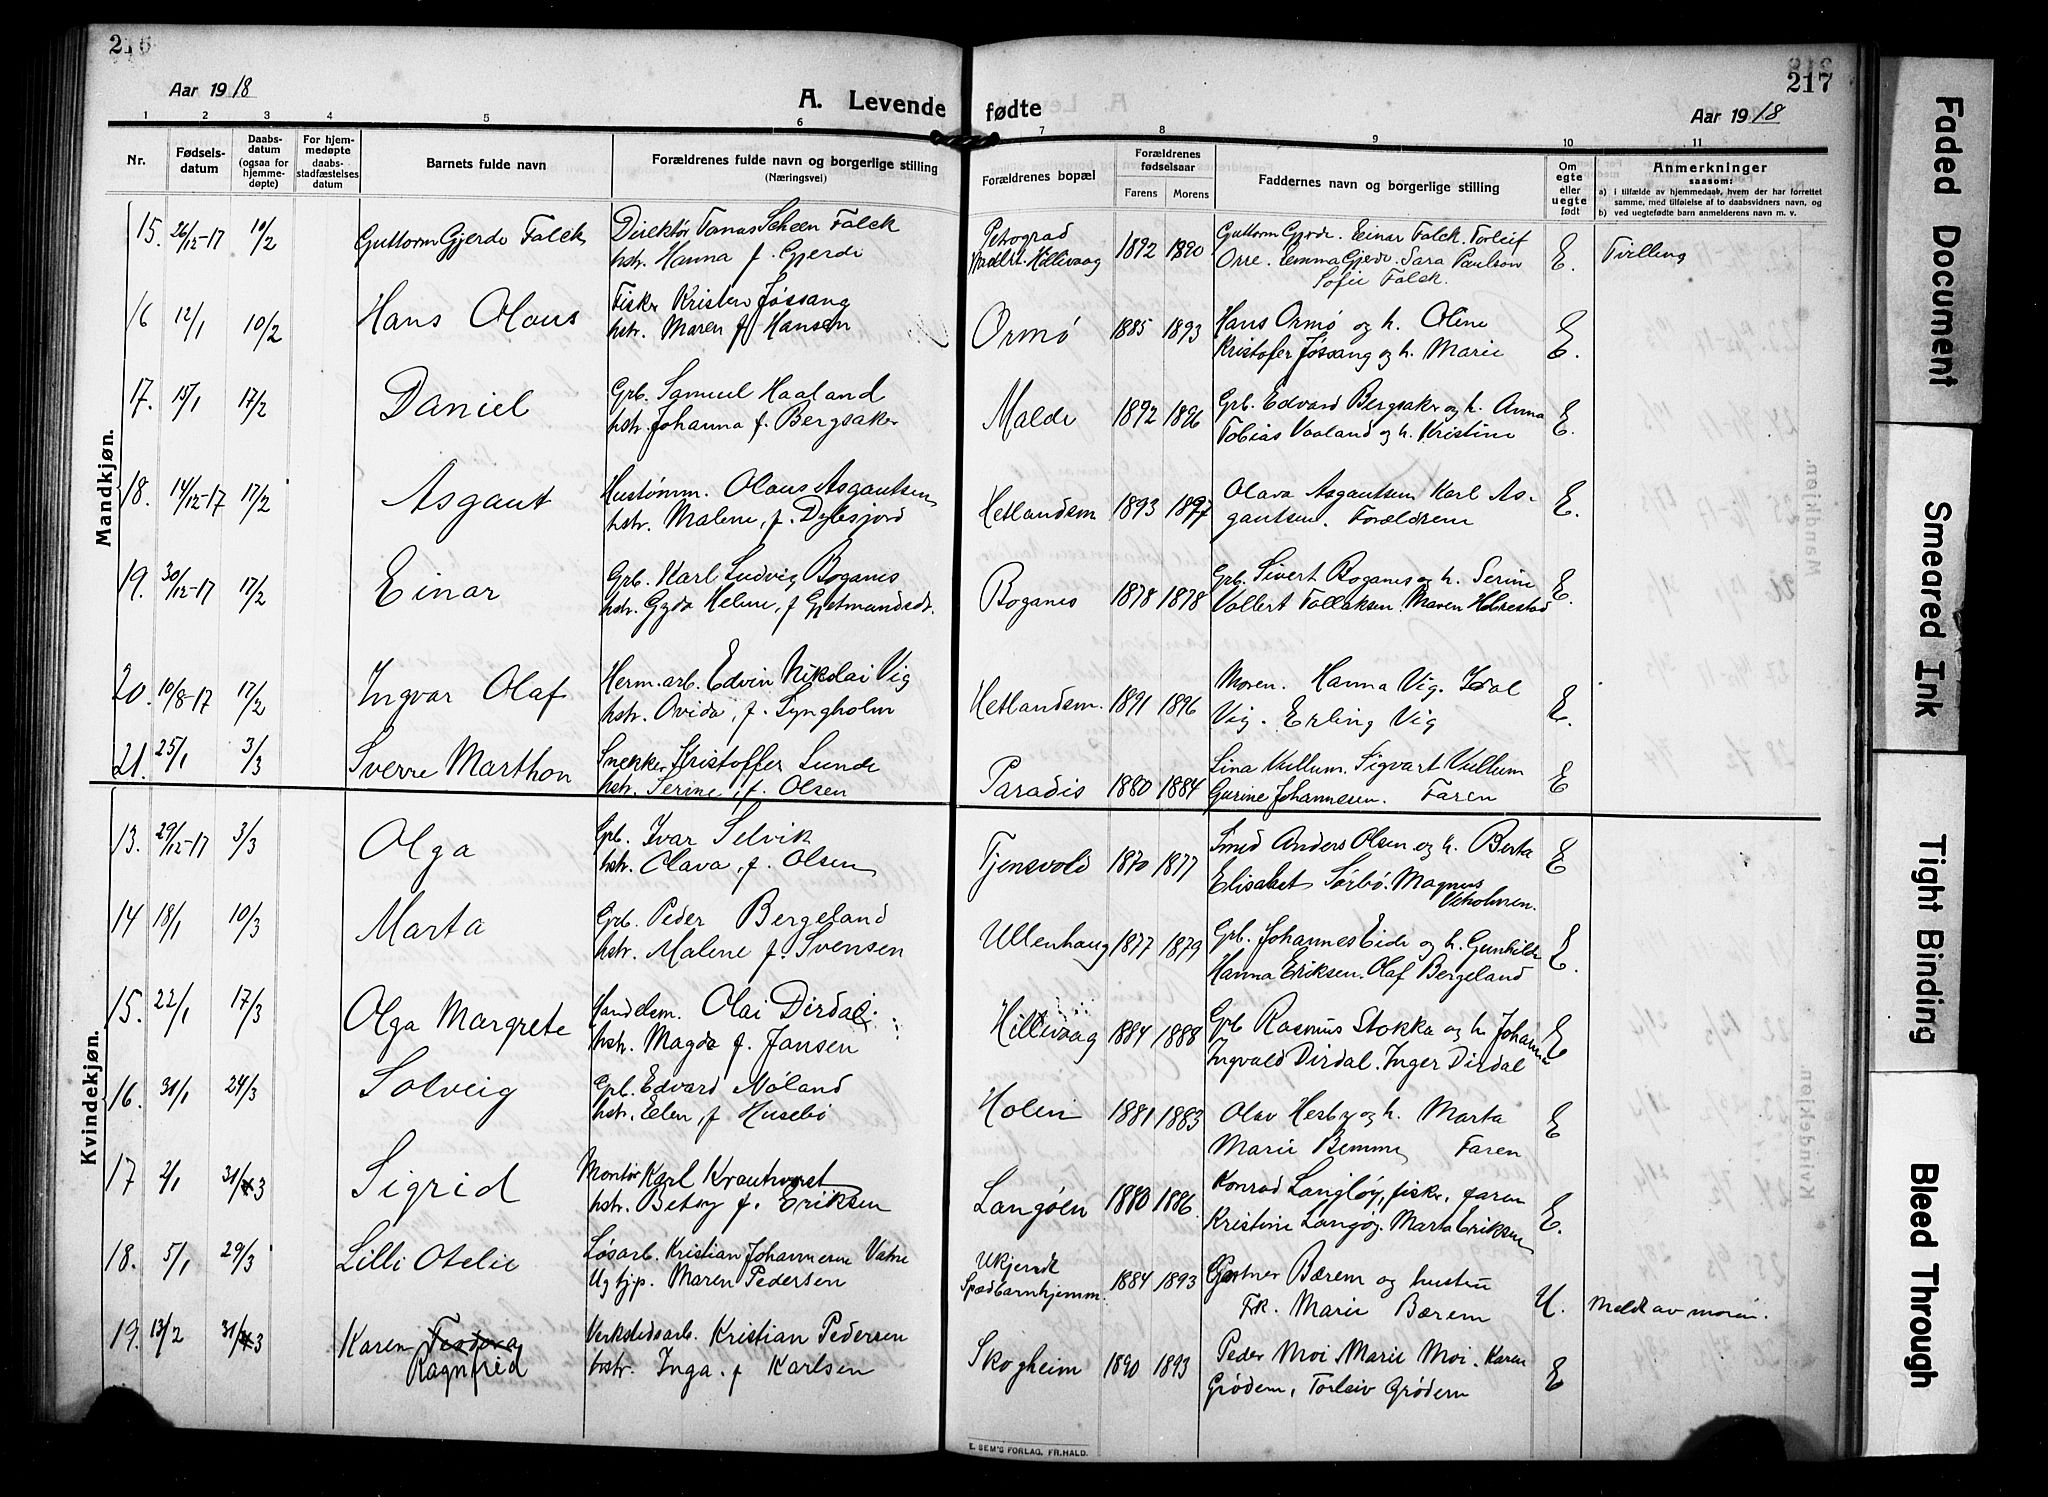 216
Aar 1918
A. Levende fødte
217
Aar 1918
1 2 3 4 5 6 7 8 9 10 11
Nr.
Fødselsdatum
Daabsdatum (ogsaa for hjemmedøpte)
For hjemmedøpte daabsstadfæstelses datum
Barnets fulde navn
Forældrenes fulde navn og borgerlige stilling
(Næringsvei)
Forældrenes bopæl
Forældrenes fødselsaar
Farens Morens
Faddernes navn og borgerlige stilling
Om egte eller uegte født
Anmerkninger
saasom:
a) i tilfælde av hjemmedaab, hvem der har forrettet
samme, med tilføielse af to daabsvidners navn, og
b) ved uegtefødte barn anmelderens navn m. v.
Mandkjøn.
15. 26/12-17 10/2 Guttorm Gjerde Falck Direktør Tomas Scheen Falck
hstr. Hanna f. Gjerde
Petrograd
Hillevaag 1892 1890 Guttorm Gjerde. Einar Falck. Torleif
Orre. Emma Gjerde. Sara Paulson
Sofie Falck. E. Tvilling
16 12/1 10/2 Hans Olaus Fisker Kristen Jøssang
hstr. Maren f. Hansen
Ormø 1885 1893 Hans Ormø og h. Oline
Kristofer Jøssang og h. Marie E.
17. 15/1 17/2 Daniel Grb. Samuel Haaland
hstr. Johanna f. Bergsaker
Malde 1892 1896 Grb. Edvard Bergsaker og h. Anna
Tobias Vaaland og h. Kristine E.
18. 14/12-17 17/2 Asgaut Hustømm. Olaus Asgautsen
hstr. Malene, f.
Hetlandsm 1893 1897 Olava Asgautsen Karl As-
gautsen. Forældrene E.
19. 30/12-17 17/2 Einar Grb. Karl Ludvig Boganes
hstr. Gyda Helene, f Gjetmundsdr.
Boganes 1878 1878 Grb. Sivert Boganes og h. Serine
Vallert Tollaksen. Maren Holrestad E.
20. 10/8-17 17/2 Ingvar Olaf Herm. arb. Edvin Nikolai Vig
hstr. Ovida, f. Lyngholm
Hetlandsm. 1891 1896 Moren. Hanna Vig. Idal
Vig. Erling Vig E.
21. 25/1 3/3 Sverre Marthon Snekker Kristoffer Lunde
hstr. Serine, f. Olsen
Paradis 1880 1884 Lina Vullum. Sigvart Vullum
Gurine Johannesen. Faren E
Kvindekjøn.
13. 29/12-17 3/3 Olga Grb. Ivar Selvik
hstr. Olava, f. Olsen
Tjensvold 1870 1877 Smed Anders Olsen og h. Berta
Elisabet Sørbø. Magnus
Veholmen. E
14 18/1 10/3 Marta Grb. Peder Bergeland
hstr. Malene f. Svensen
Ullenhaug 1877 1879 Grb. Johannes Eide og h. Gunhilde
Hanna Eriksen. Olaf Bergeland E.
15. 22/1 17/3 Olga Margrete Handelsm. Olai Dirdal
hstr. Magda f. Jansen
Hillevaag 1884 1888 Grb Rasmus Stokka og h. Johanne
Ingvald Dirdal. Inger Dirdal E
16. 31/1 24/3 Solveig Grb. Edvard Møland
hstr. Elen, f Husebø
Holen 1881 1883 Olav Hesby og h. Marta
Marie Bemme, Faren E
17 2/1 31/3 Sigrid Montør Karl Krauthvest
hstr. Betsy f. Eriksen
Langøen 1880 1886. Konrad Langløy, fisk., faren
Kristine Langøj. Marta Eriksen E.
18. 5/1 29/3 Lilli Otelie Løsarb. Kristian Johannesen Vatne
Ug tjp. Maren Pedersen
Ukjendt
Spædbarnhjemm. 1884 1893 Gartner Bærem og hustru
Frk. Marie Bærem U. Meldt av moren.
19. 13/2 31/3 Karen
Ragnfrid Verkstedsarb. Kristian Pedersen
hstr. Inga. f Karlsen
Skogheim 1890 1893 Peder Moi Marie Moi. Karen
Grødem, Torleiv Grødem E
E. SEM'S FORLAG, FR.HALD.
Faded Document
Smeared Ink
Tight Binding
Bleed Through